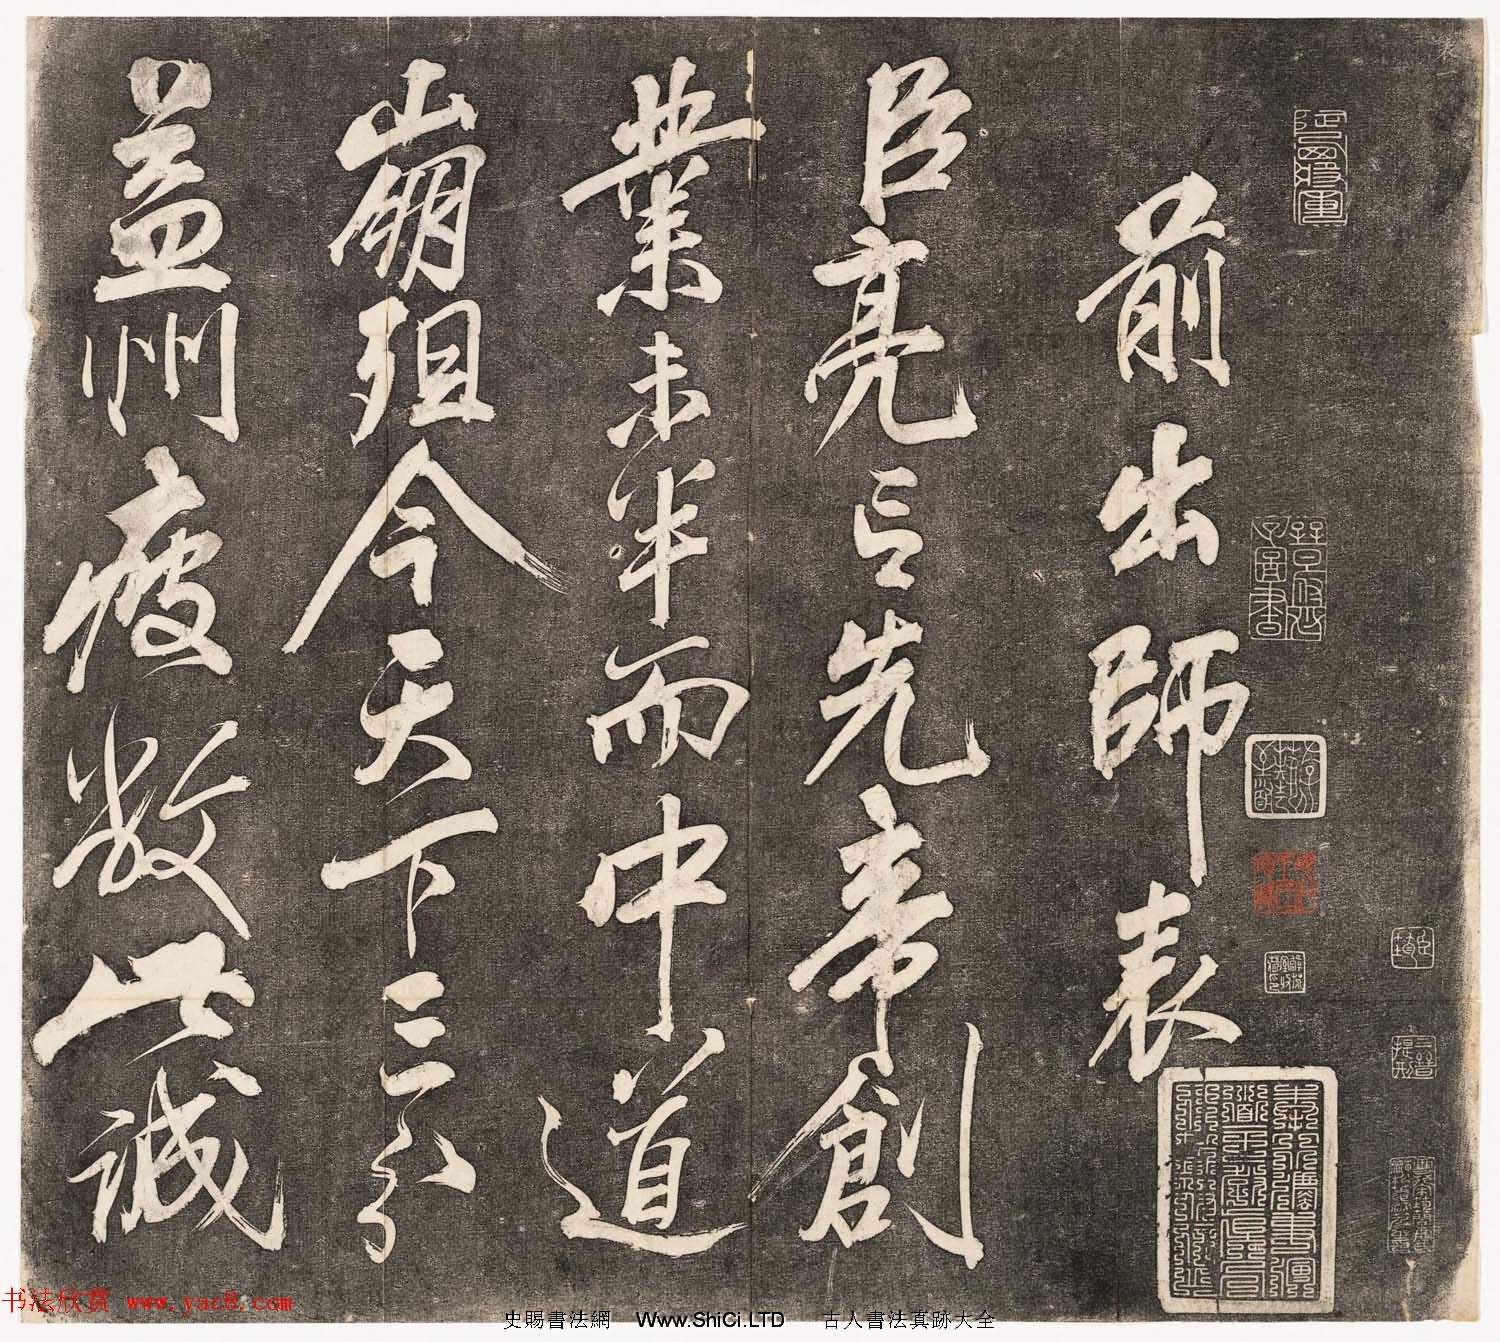 前出師表
臣亮言先帝創
業未半而中道
崩殂今天下三分
益州疲敝此誠
书法欣赏 www.yac8.com
史賜書法網 Www.ShiCi.LTD 古人書法真跡大全